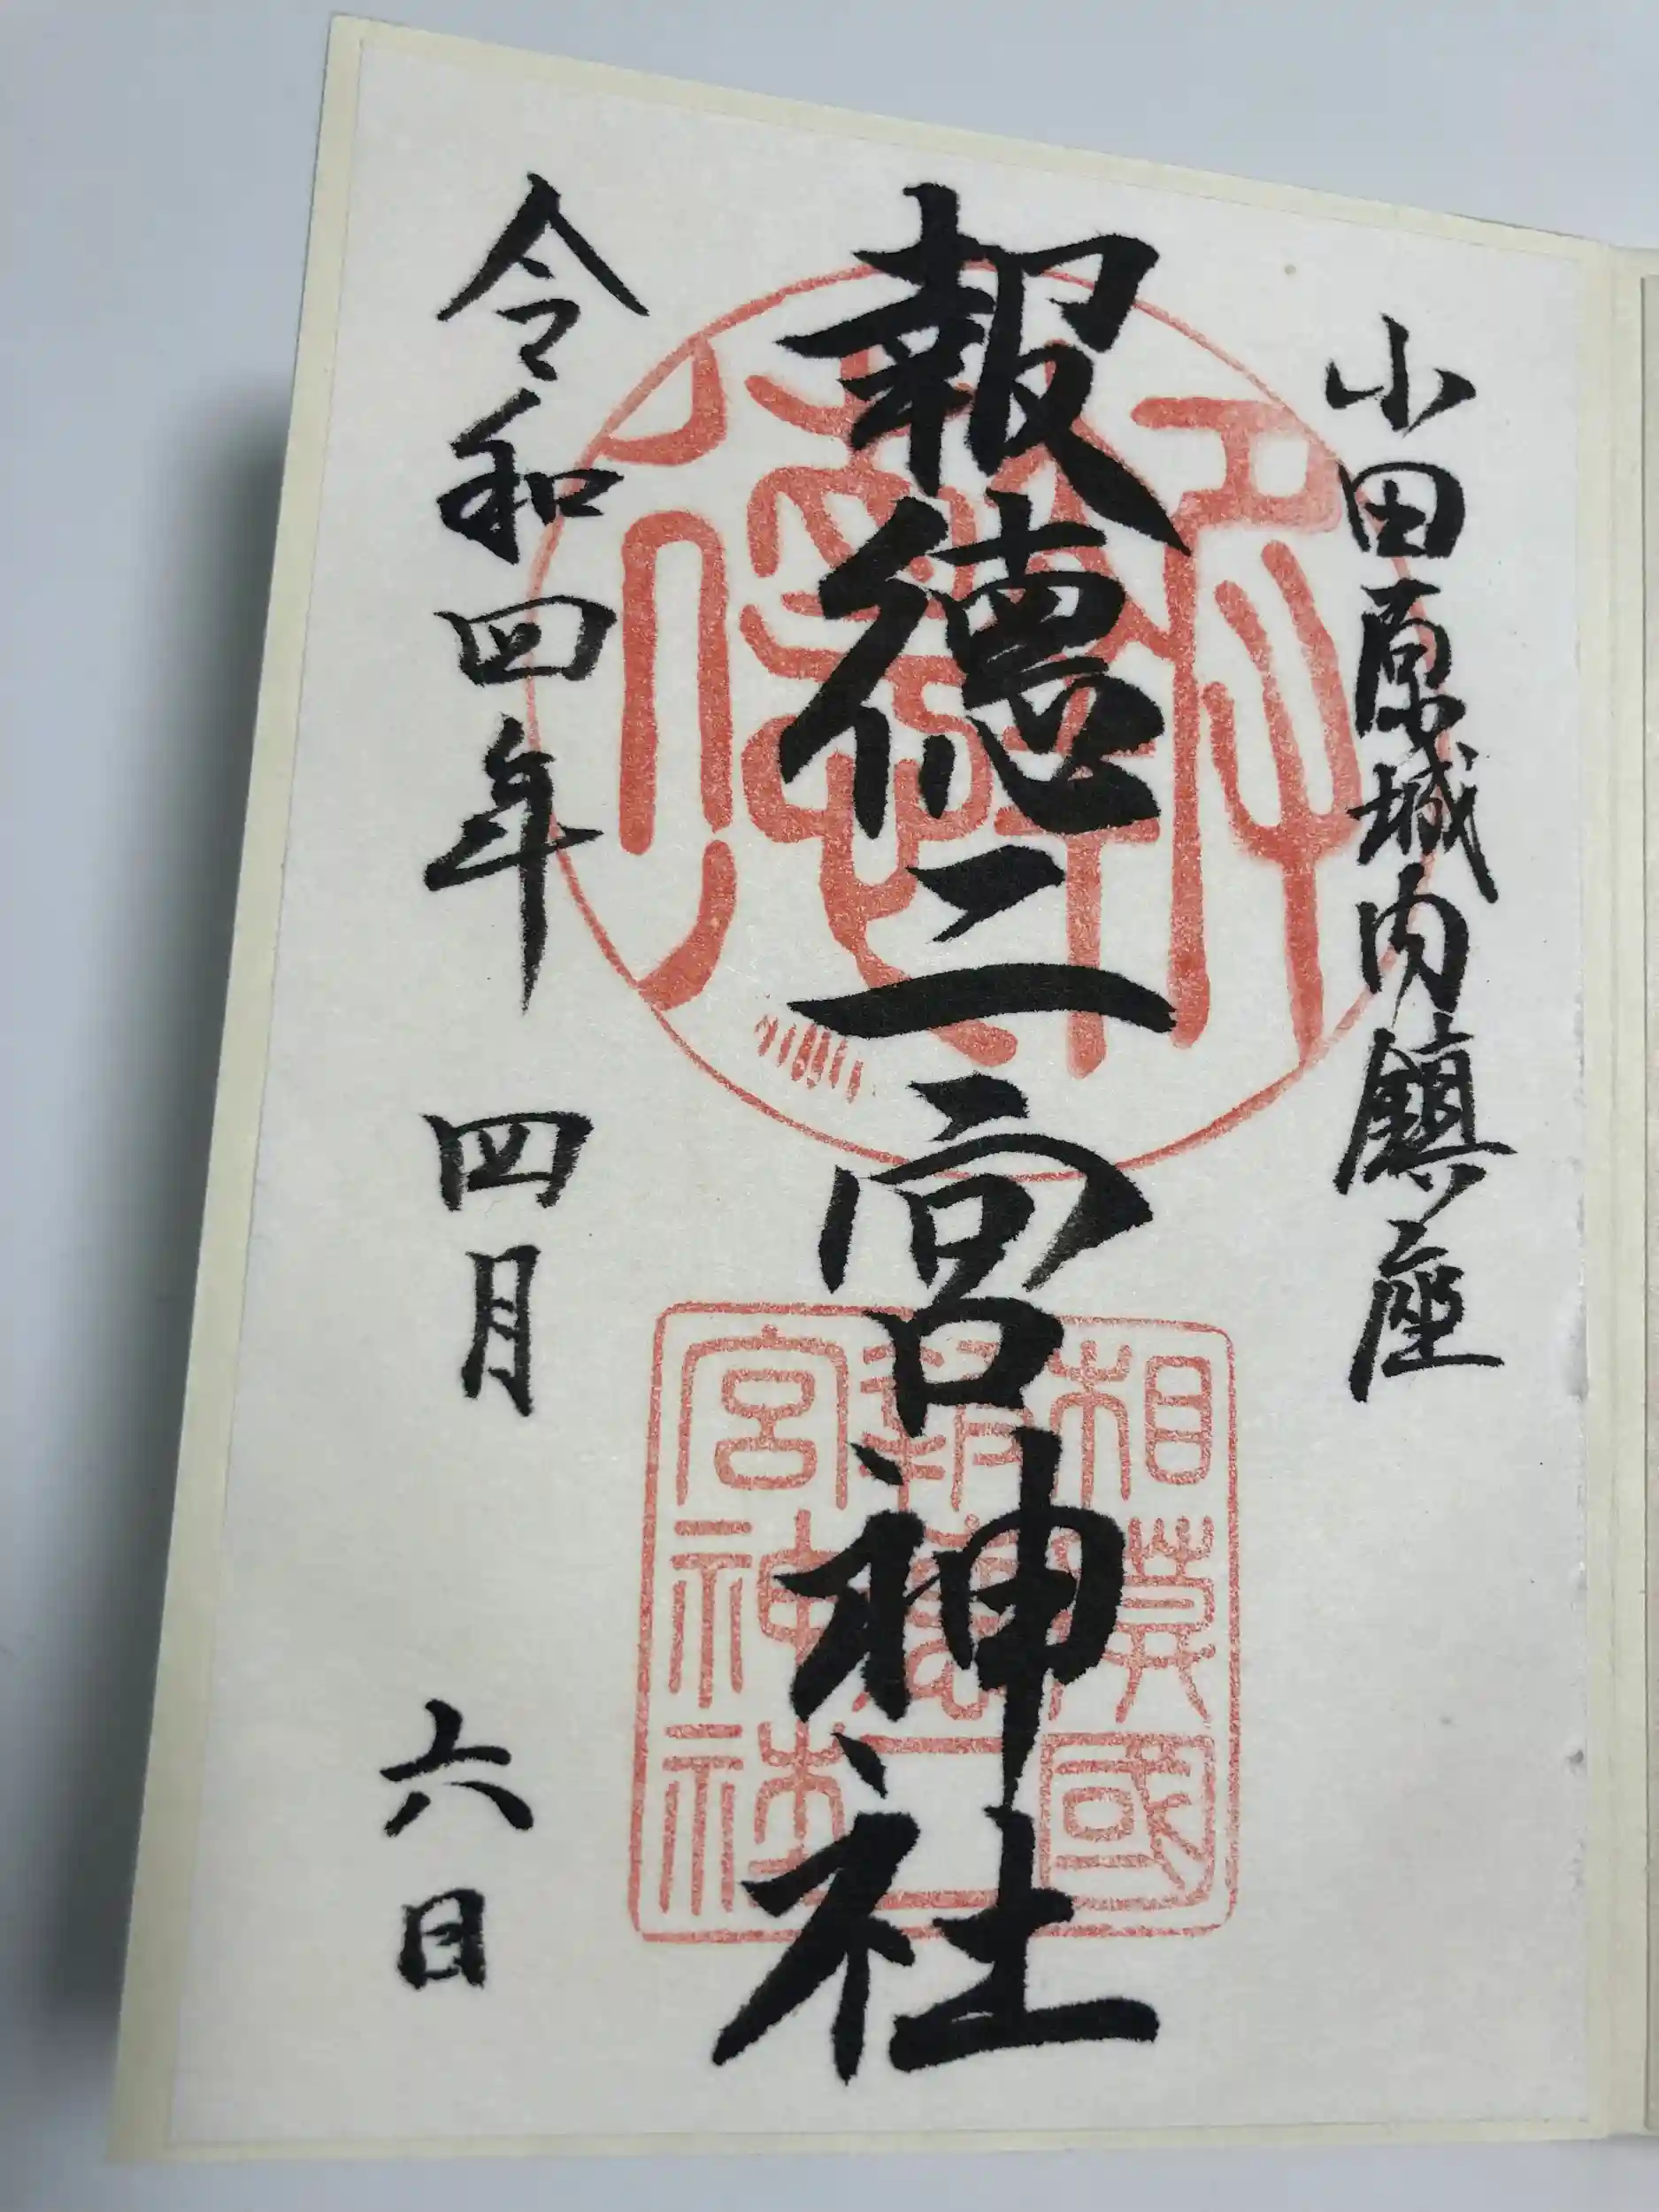 小田原城内鎮座
報徳二宮神社
令和四年 四月 六日
相模國
報徳二
宮神社